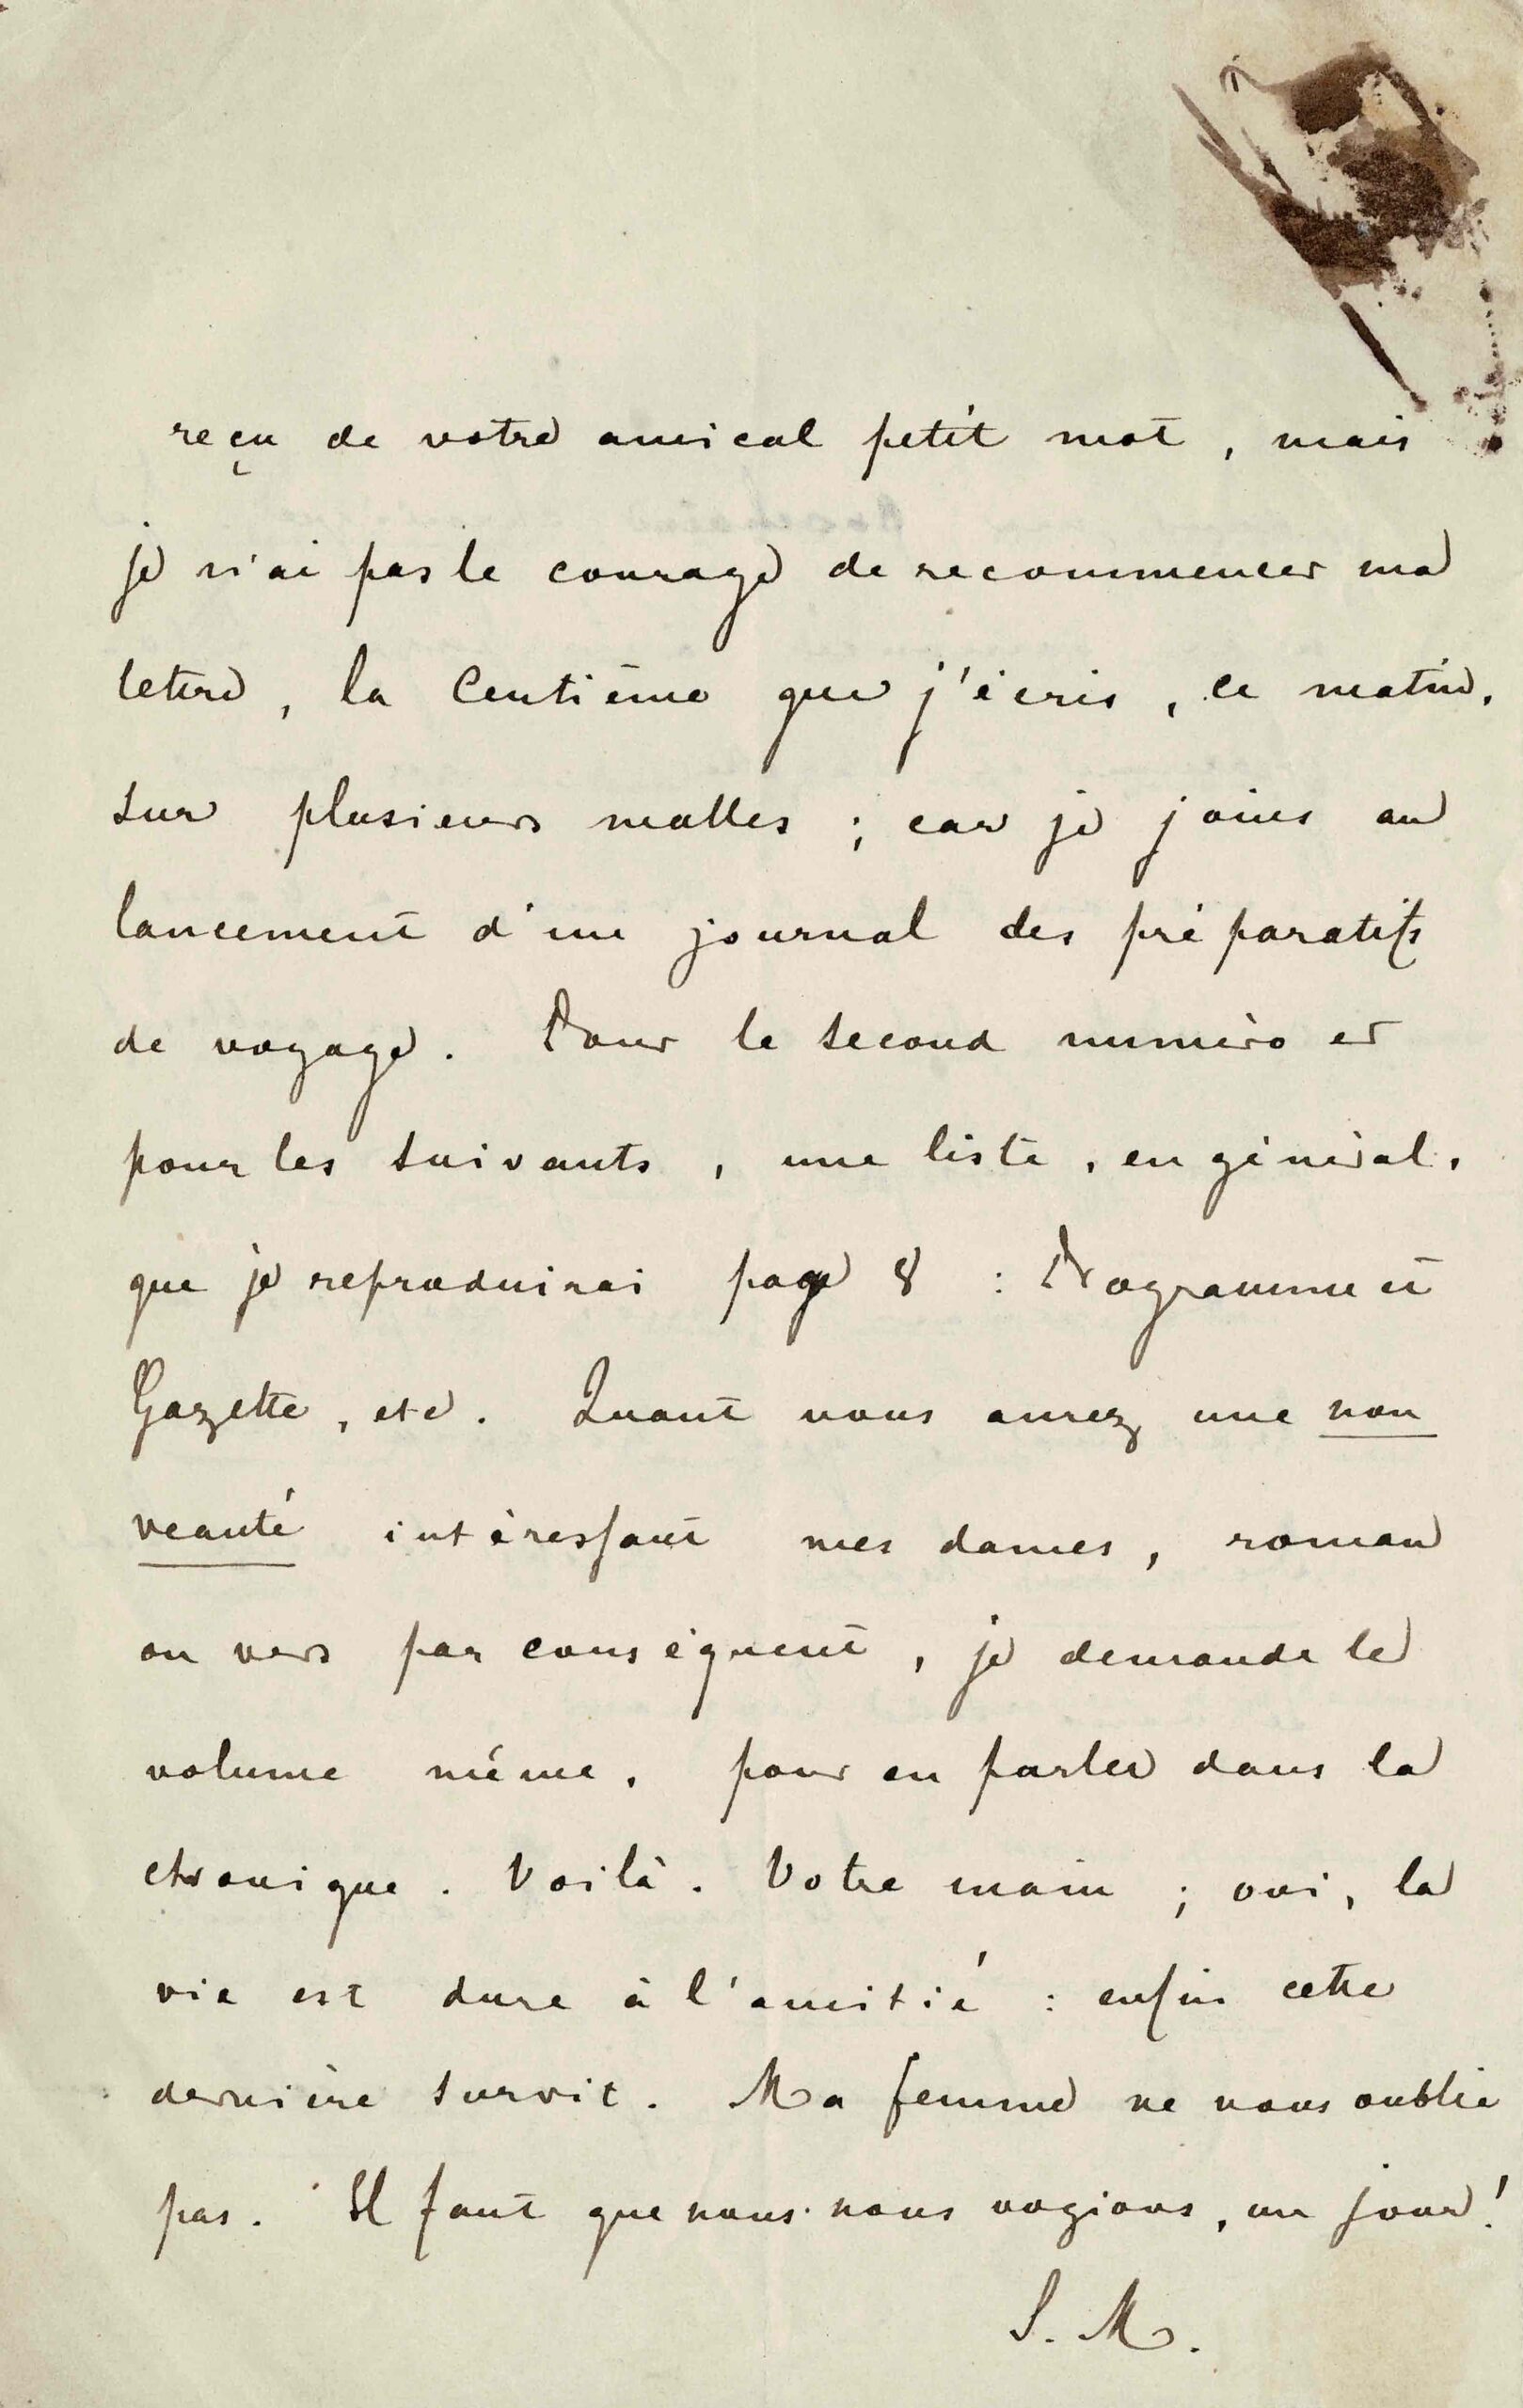 reçu de votre amical petit mot, mais
je n'ai pas le courage de recommencer ma
lettre, la Centième que j'écris, ce matin,
sur plusieurs malles ; car je joins au
lancement d'un journal des préparatifs
de voyage. Pour le second numéro et
pour les suivants, une liste, en général,
que je reproduirai page 8 : Programme et
Gazette, etc. Quant vous aurez une nou
veauté intéressant mes dames, roman
ou vers par conséquent, je demande le
volume même, pour en parler dans la
chronique. Voilà. Votre main ; oui, la
vie est dure à l'amitié : enfin cette
dernière survit. Ma femme ne vous oublie
pas. Il faut que nous nous voyions, un jour !
S. M.